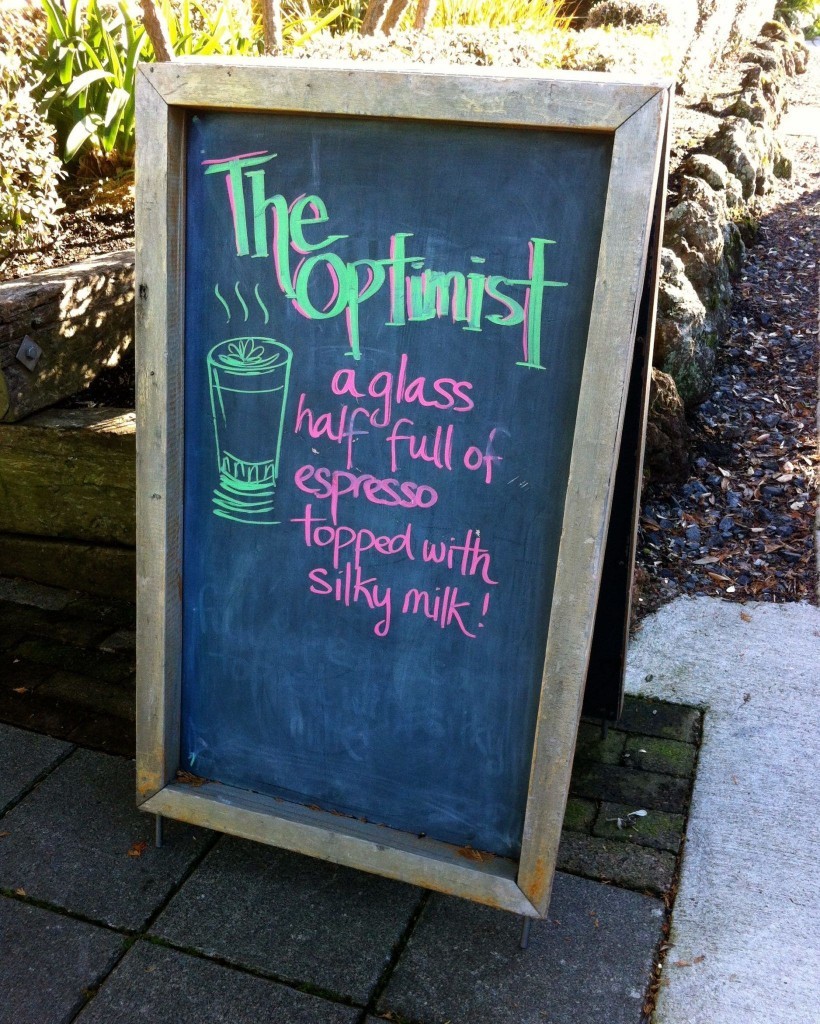 The
Optimist
a glass
half full of
espresso
topped with
silky milk!